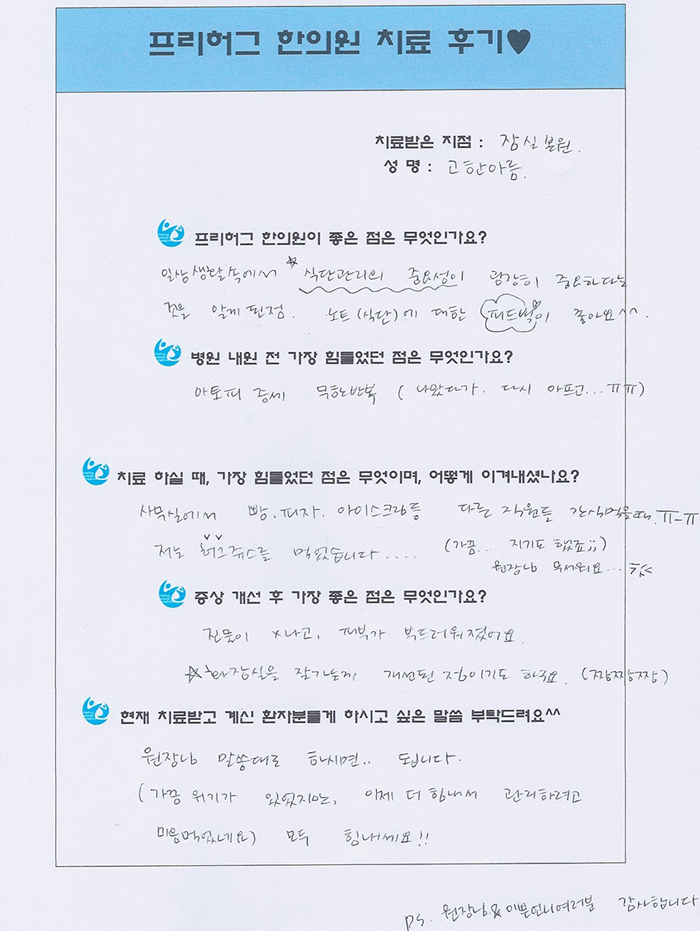 프리허그 한의원 치료 후기♥
치료받은 지점 : 잠실본원.
성 명 : 고한아름.
프리허그 한의원이 좋은 점은 무엇인가요?
일상생활속에서 ☆식단관리의 중요성이 굉장히 중요하다는
것을 알게된점. 노트(식단)에 대한 피드백이 좋아요^^.
병원 내원 전 가장 힘들었던 점은 무엇인가요?
아토피 증세 무한반복 ( 나았다가. 다시 아프고...ㅠㅠ)
치료 하실 때, 가장 힘들었던 점은 무엇이며, 어떻게 이겨내셨나요?
사무실에서 빵.피자.아이스크림등 다른 직원들 간식먹을때.ㅠ-ㅠ
저는 허그쥬스를 먹었습니다.... (가끔... 지기도 했죠;;)
원장님 무서워요...
증상 개선 후 가장 좋은 점은 무엇인가요?
진물이 x나고, 피부가 부드러워졌어요.
☆화장실을 잘가는게 개선된 점이기도 하구요. (짱짱짱)
현재 치료받고 계신 환자분들게 하시고 싶은 말씀 부탁드려요^^
원장님 말씀대로 하시면.. 됩니다.
(가끔 위기가 있었지만, 이제 더 힘내서 관리하려고
마음먹었네요) 모두 힘내세요!!
ps. 원장님& 이쁜언니여러분 감사합니다